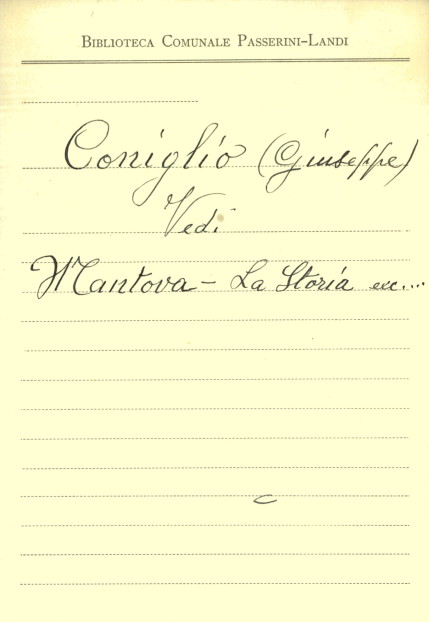 BIBLIOTECA COMUNALE PASSERINI-LANDI
Coniglio (Giuseppe)
Vedi
Mantova - La Storia ecc....